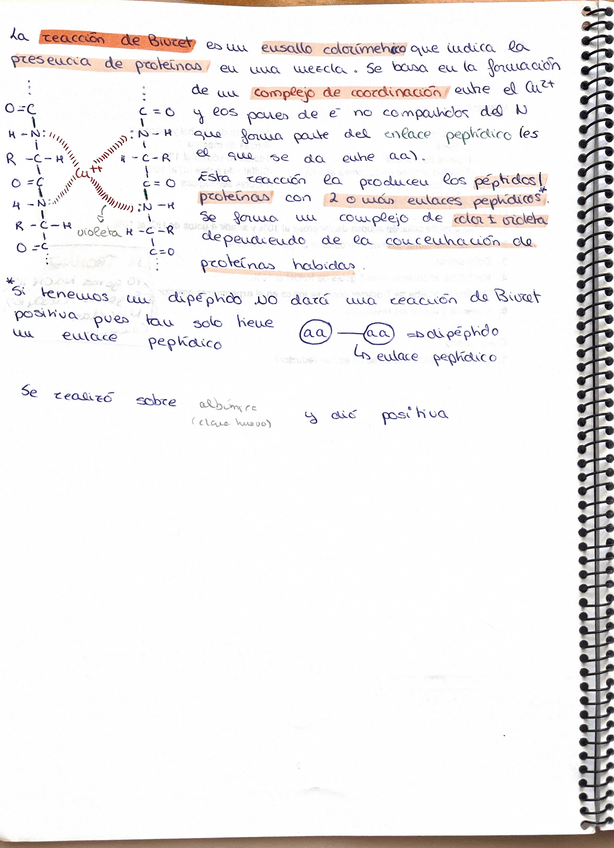 La reacción de Biuret es un ensallo colorimétrico que indica la
presencia de proteínas en una mezcla. Se basa en la formación
de un complejo de coordinación entre el Cu2+
y los pares de e- no compartidos del N
que forma parte del enlace peptídico (es
el que se da entre aa).
Esta reacción la producen los péptidos/
proteínas con 2 o más enlaces peptídicos*.
Se forma un complejo de color ± violeta
dependiendo de la concentración de
proteínas habidas.
O=C
C=O
H-N:
:N-H
R-C-H
H-C-R
Cu++
O=C
C=O
H-N:
:N-H
R-C-H
violeta
H-C-R
O=C
C=O
* Si tenemos un dipéptido NO dará una reacción de Biuret
positiva pues tan solo tiene
un enlace peptídico
aa — aa => dipéptido
↳ enlace peptídico
Se realizó sobre albúmina y dió positiva
(clara huevo)